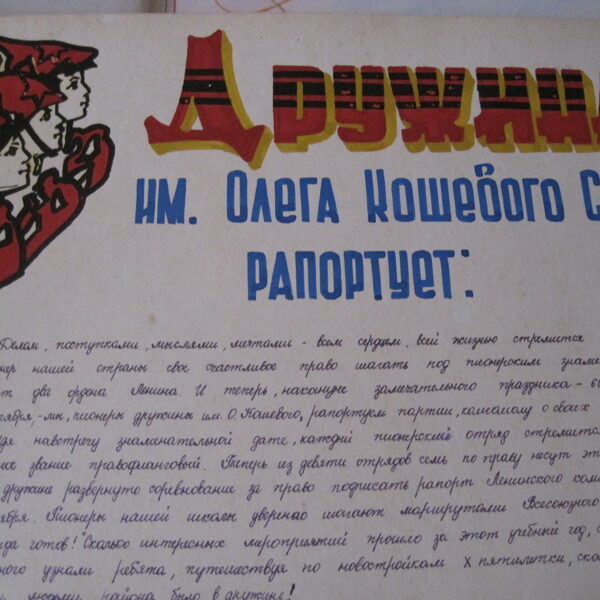 Дружина
им. Олега Кошевого С
рапортует:
Делом, поступками, мыслями, мечтами - всем сердцем, всей жизнью стремится
нер нашей страны свое счастливое право шагать под пионерским знаме
т два ордена Ленина. И теперь, накануне замечательного праздника - 60
тября, - мы, пионеры дружины им. О. Кошевого, рапортуем партии, комсомолу о своих
навстречу знаменательной дате, каждый пионерский отряд стремится
звание правофланговый. Теперь из девяти отрядов семь по праву несут эт
дружине развернуто соревнование за право подписать рапорт Ленинского ком
ября. Пионеры нашей школы уверенно шагают маршрутами Всесоюзного
гда готов!" Сколько интересных мероприятий прошло за этот учебный год, с
ного узнали ребята, путешествуя по новостройкам X пятилетки, ско
людьми района было в дружине!